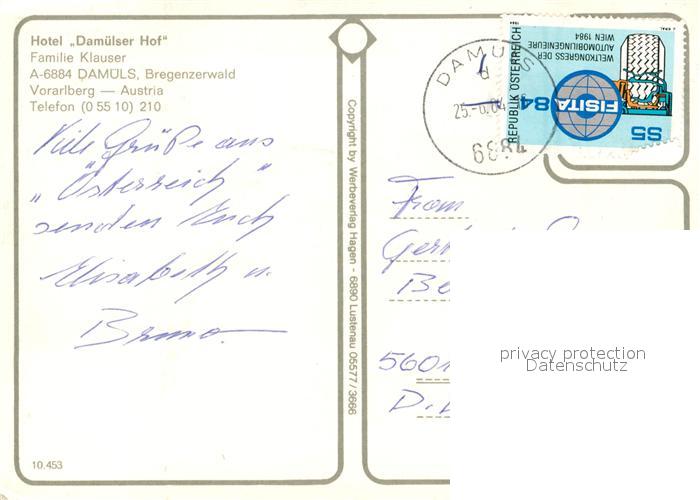 Hotel „Damülser Hof“
Familie Klauser
A-6884 DAMÜLS, Bregenzerwald
Vorarlberg — Austria
Telefon (0 55 10) 210
Viele Grüße aus
„Österreich“
senden Euch
Elisabeth u.
Bruno.
10.453
Copyright by Werbeverlag Hagen - 6890 Lustenau 05577/3666
DAMÜLS
d
25.-6.84
6884
REPUBLIK ÖSTERREICH
WELTKONGRESS DER
AUTOMOBILINGENIEURE
WIEN 1984
FISITA 84
S5
Fram
5601
privacy protection
Datenschutz